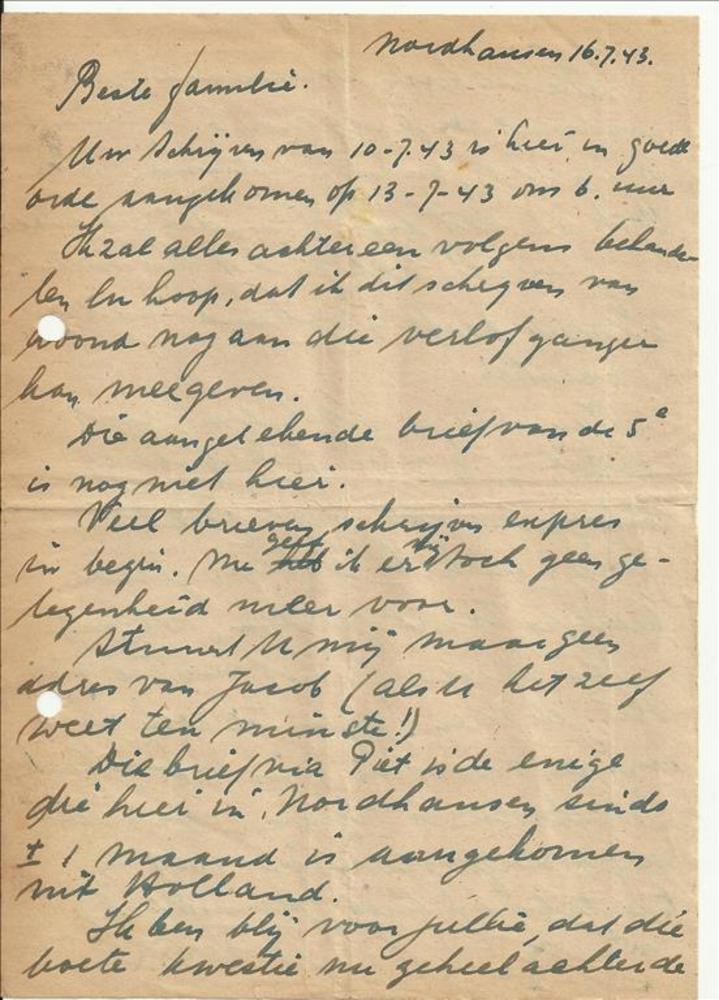 Nordhausen 16.7.43.
Beste familie.
Uw schrijven van 10-7.43 is hier in goede
orde aangekomen op 13-7-43 om 6. uur
Ik zal alles achtereen volgens behande-
len En hoop, dat ik dit schrijven van
avond nog aan die verlofganger
kan meegeven.
Die aangetekende brief van de 5e
is nog niet hier.
Veel brieven schrijven expres
in begin. Nu geeft ik er mij toch geen ge-
legenheid meer voor.
Stuurt U mij maar geen
adres van Jacob (als U het zelf
weet ten minste!)
Die brief via Piet is de enige
die hier in Nordhausen sinds
± 1 maand is aangekomen
uit Holland.
Ik ben blij voor jullie, dat die
boete kwestie nu geheel achter de